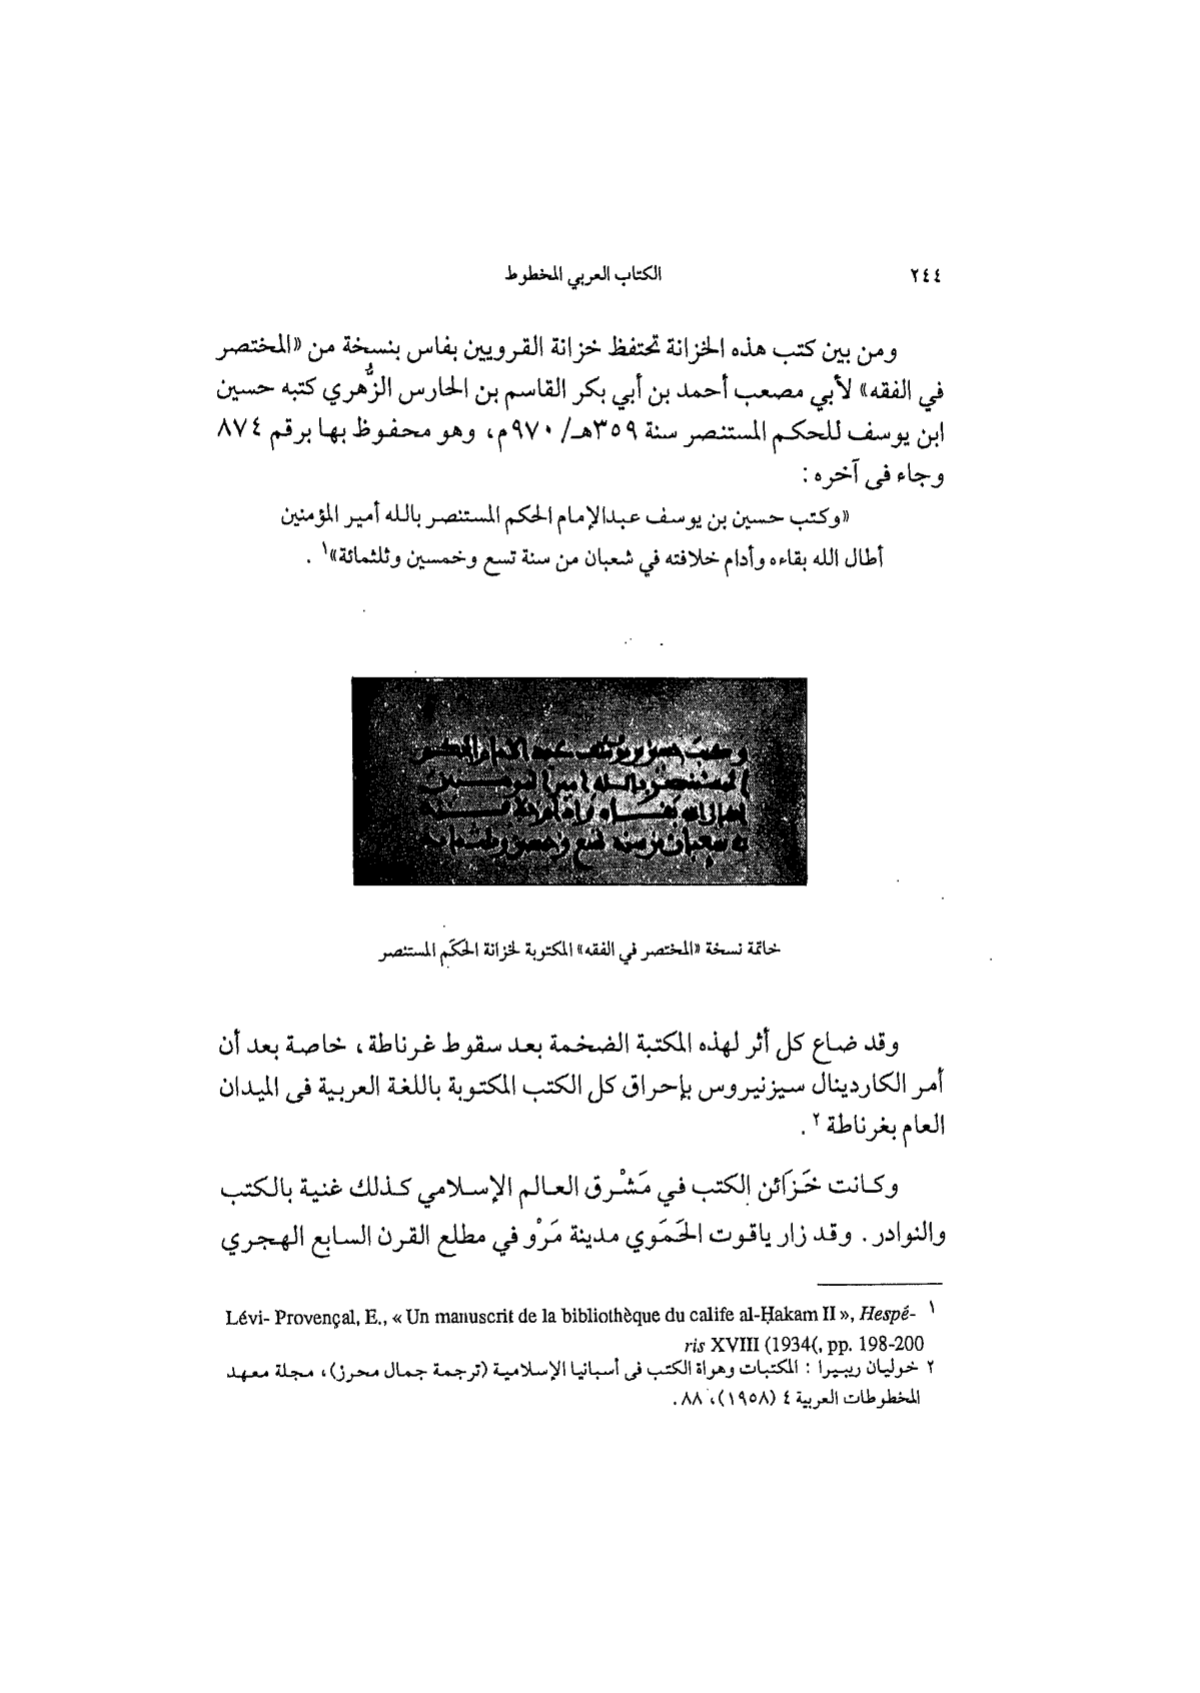 ٢٤٤
الكتاب العربي المخطوط
ومن بين كتب هذه الخزانة تحتفظ خزانة القرويين بفاس بنسخة من «المختصر
في الفقه» لأبي مصعب أحمد بن أبي بكر القاسم بن الحارس الزُّهري كتبه حسين
ابن يوسف للحكم المستنصر سنة ٣٥٩هـ/ ٩٧٠م، وهو محفوظ بها برقم ٨٧٤
وجاء فى آخره :
«وكتب حسين بن يوسف عبدالإمام الحكم المستنصر بالله أمير المؤمنين
أطال الله بقاءه وأدام خلافته في شعبان من سنة تسع وخمسين وثلثمائة»١ .
وكتب حسين بن يوسف عبد الامام الحكم
المستنصر بالله امير المومنين
اطال الله بقاه وادام خلافته
في شعبان من سنة تسع وخمسين وثلثمائة
خاتمة نسخة «المختصر في الفقه» المكتوبة لخزانة الحكَم المستنصر
وقد ضاع كل أثر لهذه المكتبة الضخمة بعد سقوط غرناطة، خاصة بعد أن
أمر الكاردينال سيزنيروس بإحراق كل الكتب المكتوبة باللغة العربية فى الميدان
العام بغرناطة ٢ .
وكانت خَزَائن الكتب في مَشْرق العالم الإسلامي كذلك غنية بالكتب
والنوادر. وقد زار ياقوت الحَمَوي مدينة مَرْو في مطلع القرن السابع الهجري
١ Lévi- Provençal, E., « Un manuscrit de la bibliothèque du calife al-Ḥakam II », Hespé-
ris XVIII (1934(, pp. 198-200
٢ خوليان ريبيرا : المكتبات وهواة الكتب فى أسبانيا الإسلامية (ترجمة جمال محرز)، مجلة معهد
المخطوطات العربية ٤ (١٩٥٨)، ٨٨.